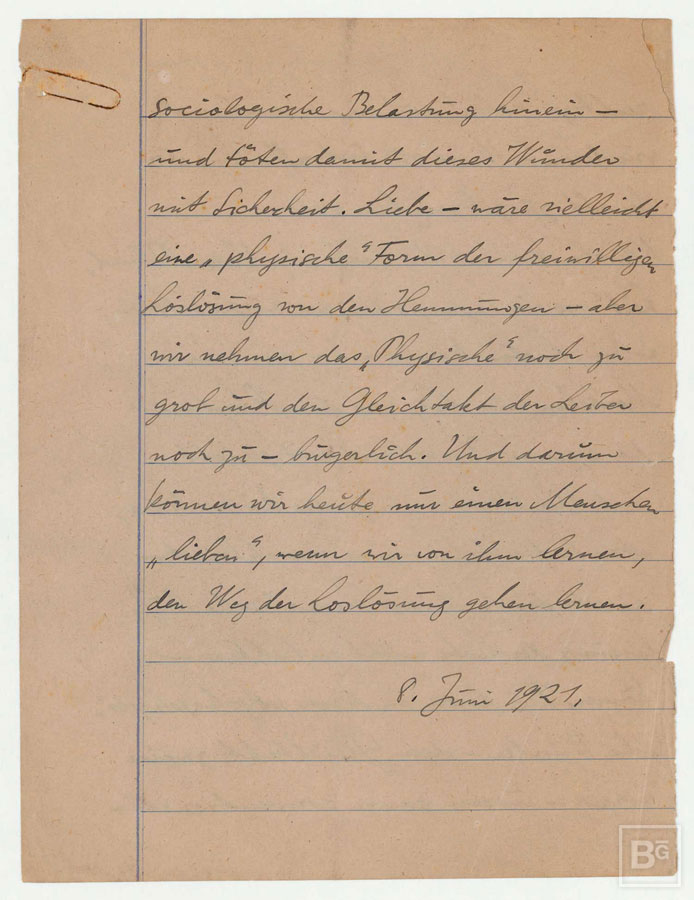 sociologische Belastung hinein –
und töten damit dieses Wunder
mit Sicherheit. Liebe – wäre vielleicht
eine „physische“ Form der freiwilligen
Loslösung von den Hemmungen – aber
wir nehmen das „Physische“ noch zu
grob und den Gleichtakt der Leiber
noch zu – bürgerlich. Und darum
können wir heute nur einen Menschen
„lieben“, wenn wir von ihm lernen,
den Weg der Loslösung gehen lernen.
8. Juni 1921.
BG